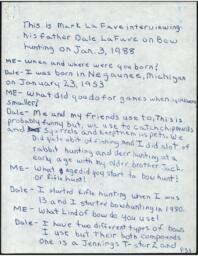 This is Mark LaFave interviewing
his father Dale LaFave on Bow
hunting on Jan. 3, 1988
ME- When and where were you born?
Dale- I was born in Negaunee, Michigan
on January 23, 1953
ME- What did you do for games when you were
smaller?
Dale- Me and my friends use to, This is
probably funny but we use to catch chipmunks
and squirrels and keep them as pets. We
did quite abit of fishing and I did alot of
rabbit hunting and deer hunting at a
early age with my older brother Jack.
ME- What age did you start to bow hunt?
or Rifle hunt?
Dale- I started Rifle hunting when I was
13 and I started bow hunting in 1980.
ME- What kind of bow do you use!
Dale- I have two different types of bows
I use but their both Compounds
One is a Jennings T-star 2 and